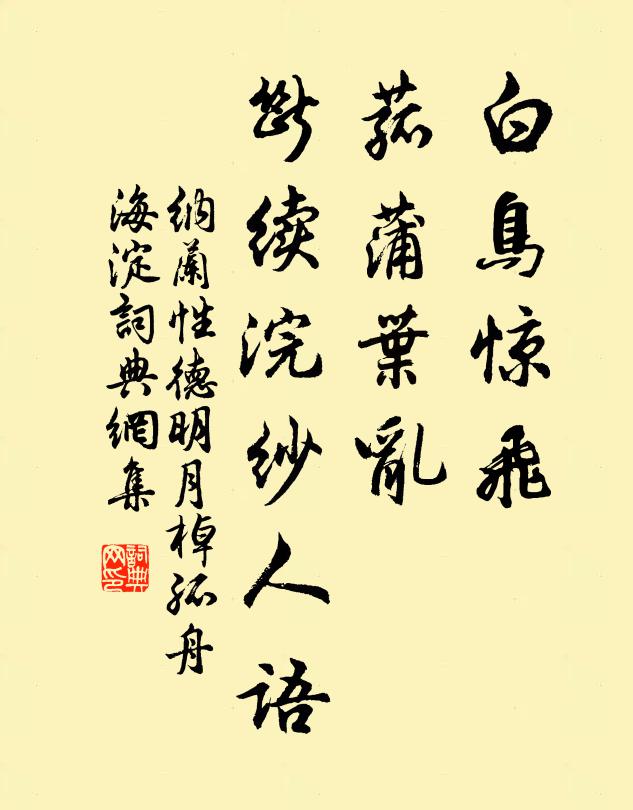 白鳥惊飛
菰蒲葉亂
斷续浣纱人語
纳蘭性德明月棹孤舟
海淀詞典網集
詞典
网印